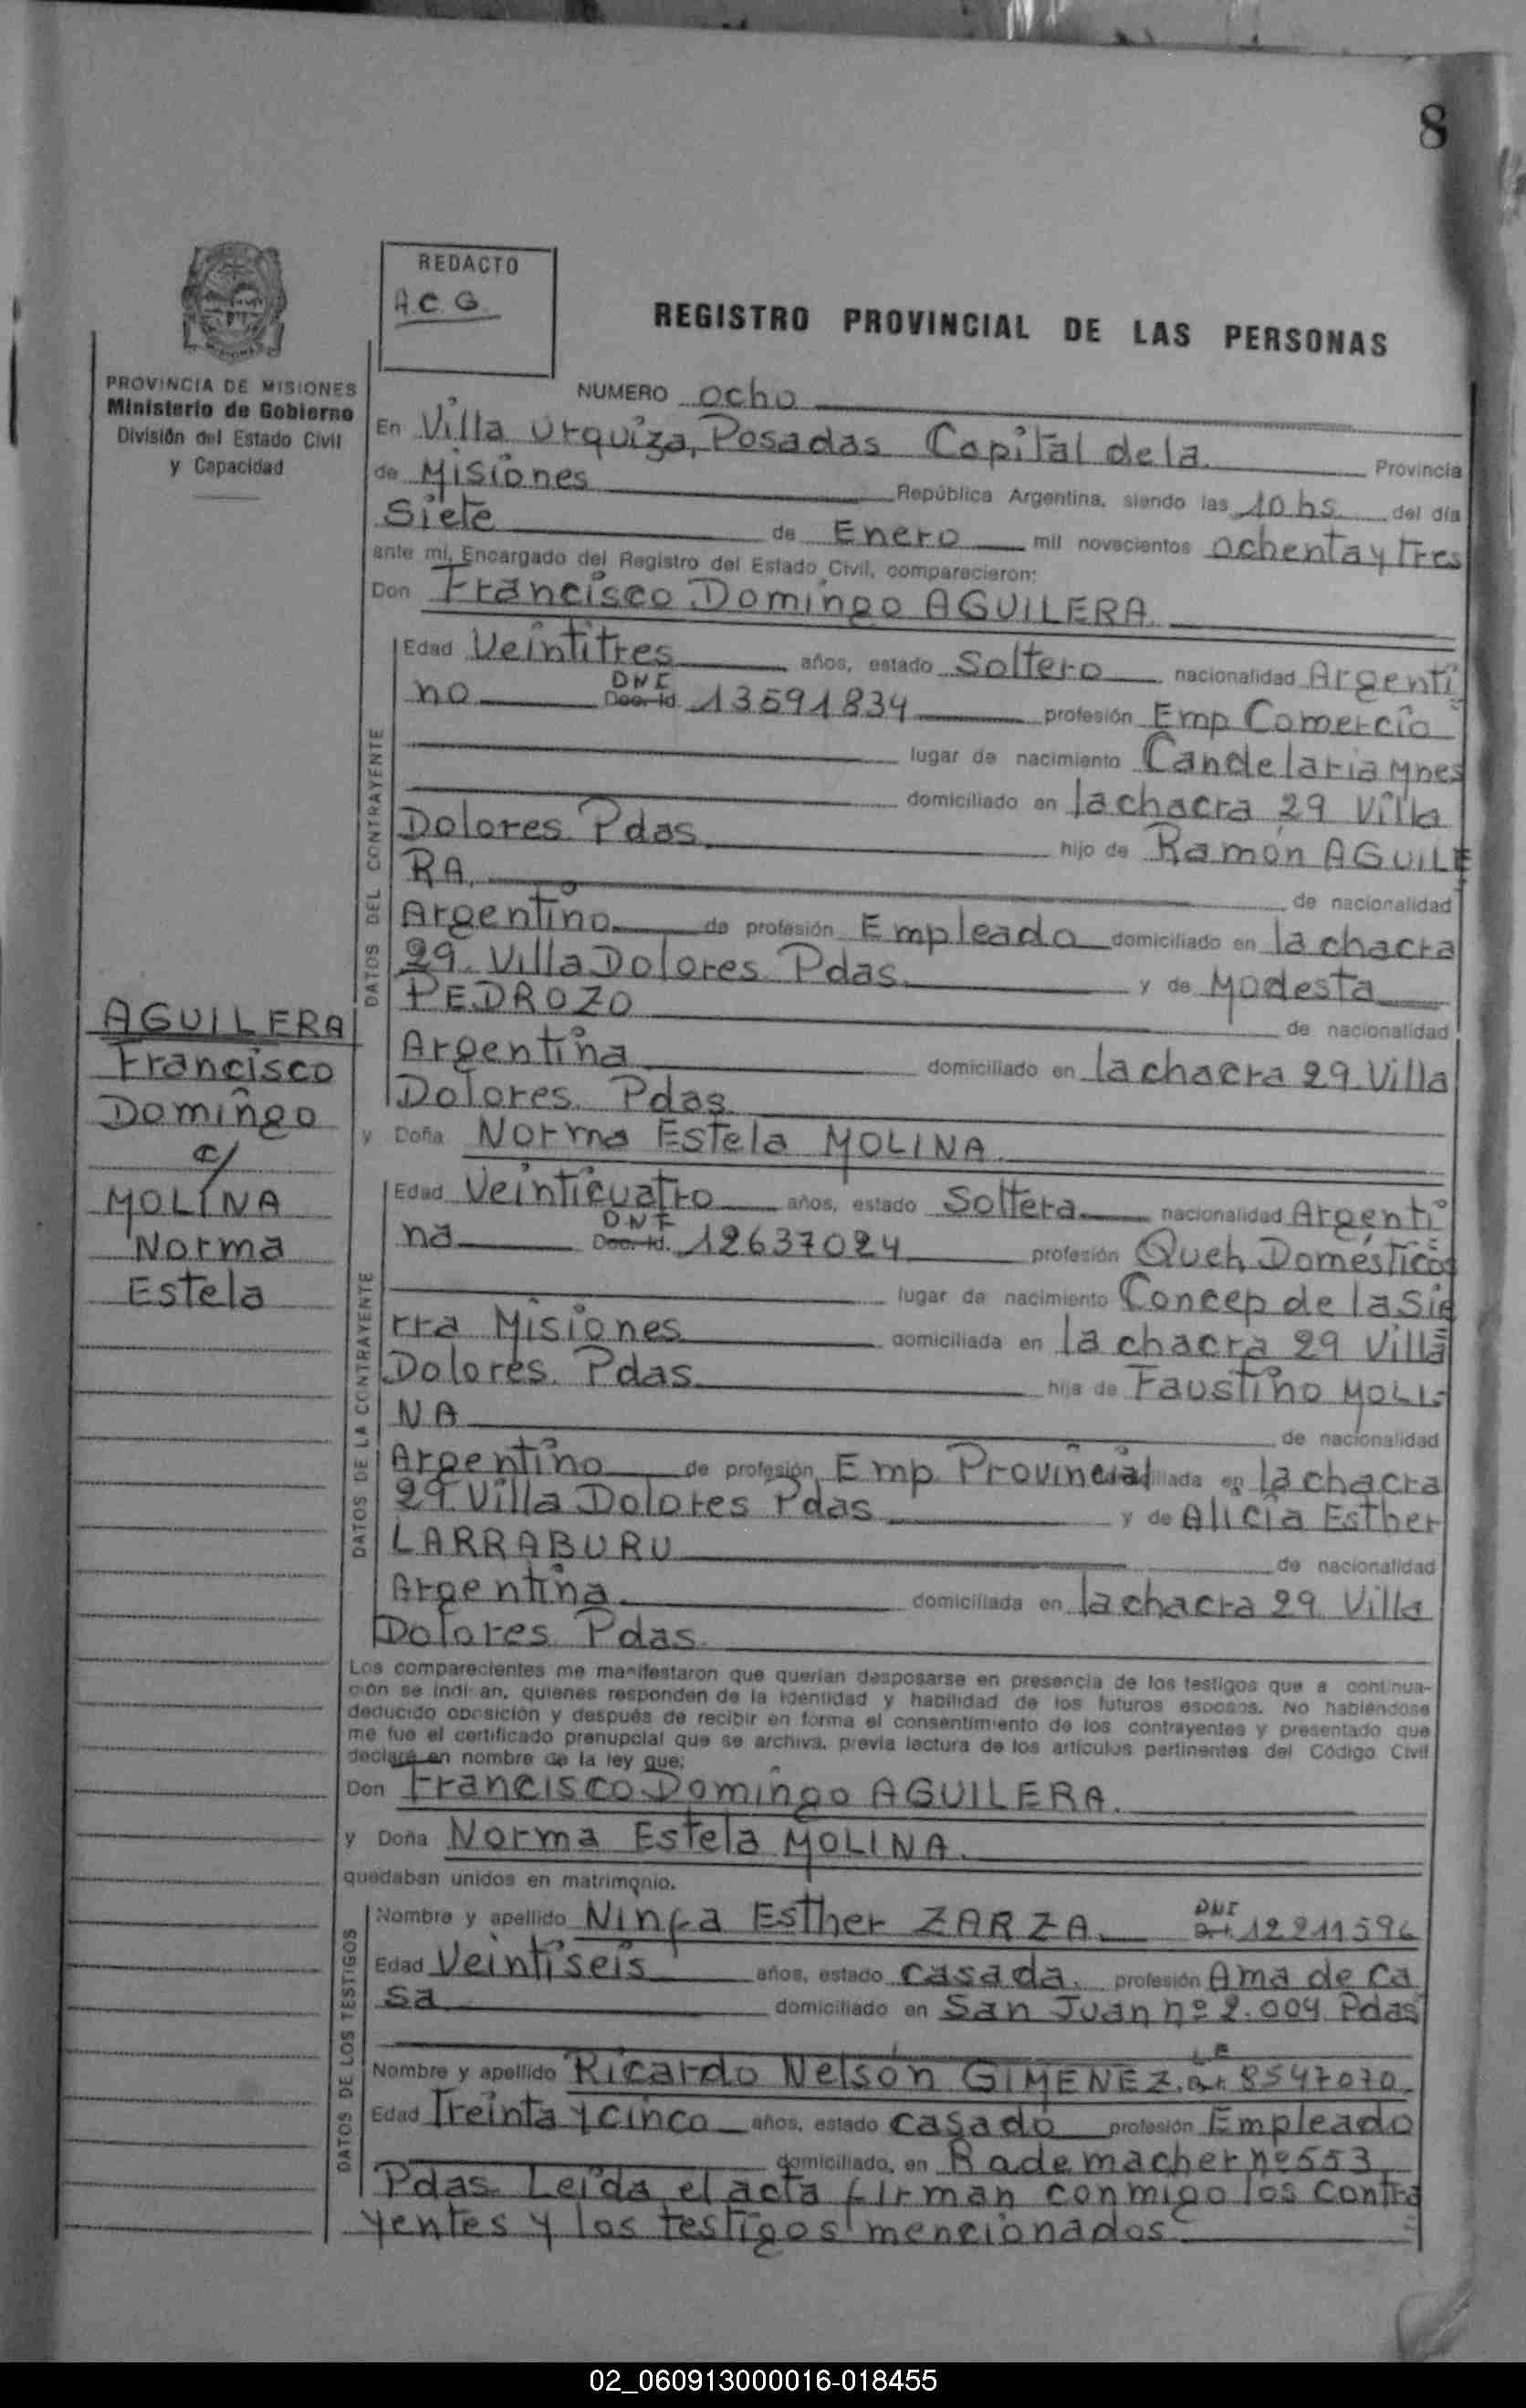 8
REDACTO
A.C.G.
REGISTRO PROVINCIAL DE LAS PERSONAS
PROVINCIA DE MISIONES
Ministerio de Gobierno
División del Estado Civil
y Capacidad
NUMERO ocho
En Villa Urquiza, Posadas Capital de la Provincia
de Misiones República Argentina, siendo las 10 hs. del día
Siete de Enero mil novecientos ochenta y tres
ante mi, Encargado del Registro del Estado Civil, comparecieron:
Don Francisco Domingo AGUILERA.
DATOS DEL CONTRAYENTE
Edad Veintitres años, estado Soltero nacionalidad Argenti
no DNI Doc. Id. 13591834 profesión Emp Comercio
lugar de nacimiento Candelaria Mnes
domiciliado en la chacra 29 Villa
Dolores. Pdas. hijo de Ramón AGUILE
RA. de nacionalidad
Argentino de profesión Empleado domiciliado en la chacra
29. Villa Dolores. Pdas. y de Modesta
PEDROZO de nacionalidad
Argentina domiciliado en la chacra 29 Villa
Dolores. Pdas.
y Doña Norma Estela MOLINA.
AGUILERA
Francisco
Domingo
c/
MOLINA
Norma
Estela
DATOS DE LA CONTRAYENTE
Edad Veinticuatro años, estado Soltera nacionalidad Argenti
na DNI Doc. Id. 12637024 profesión Queh. Domésticos
lugar de nacimiento Concep de la Sie
rra Misiones domiciliada en la chacra 29 Villa
Dolores. Pdas. hija de Faustino MOLI-
NA de nacionalidad
Argentino de profesión Emp. Provincial iliada en la chacra
29 Villa Dolores Pdas y de Alicia Esther
LARRABURU de nacionalidad
Argentina domiciliada en la chacra 29 Villa
Dolores Pdas.
Los comparecientes me manifestaron que querían desposarse en presencia de los testigos que a continua-
ción se indican, quienes responden de la identidad y habilidad de los futuros esposos. No habiéndose
deducido oposición y después de recibir en forma el consentimiento de los contrayentes y presentado que
me fue el certificado prenupcial que se archiva, previa lectura de los artículos pertinentes del Código Civil
declaré en nombre de la ley que:
Don Francisco Domingo AGUILERA.
y Doña Norma Estela MOLINA.
quedaban unidos en matrimonio.
DATOS DE LOS TESTIGOS
Nombre y apellido Ninfa Esther ZARZA. DNI 12211596
Edad Veintiseis años, estado casada. profesión Ama de ca
sa domiciliado en San Juan nº 2.004 Pdas
Nombre y apellido Ricardo Nelsón GIMENEZ. LE 8547070
Edad Treinta y cinco años, estado casado profesión Empleado
domiciliado, en Rademacher nº 553
Pdas. Leída el acta firman conmigo los Contra
yentes y los testigos mencionados
02_060913000016-018455